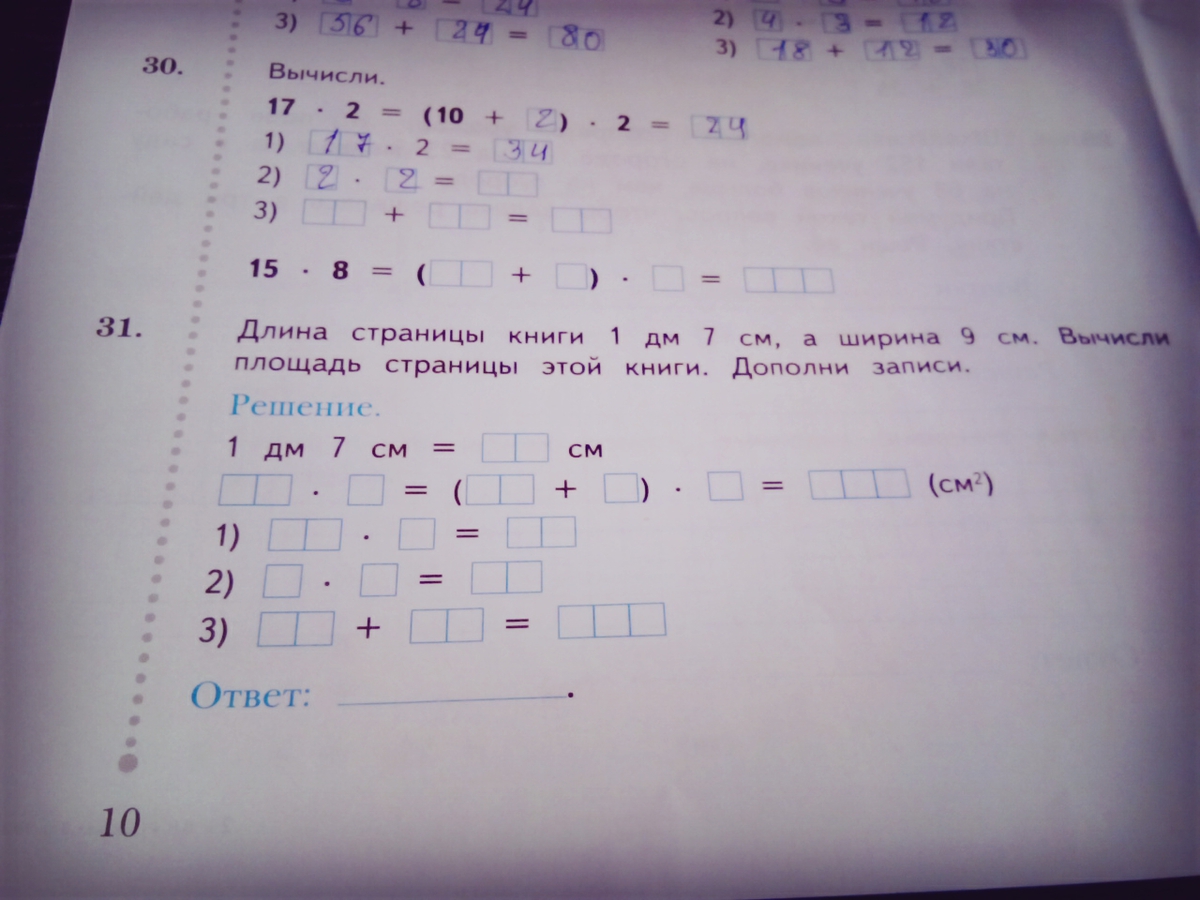 = 24
3) 56 + 24 = 80
2) 4 · 3 = 12
3) 18 + 12 = 30
30. Вычисли.
17 · 2 = (10 + 2) · 2 = 24
1) 17 · 2 = 34
2) 2 · 2 =
3) + =
15 · 8 = ( + ) · =
31. Длина страницы книги 1 дм 7 см, а ширина 9 см. Вычисли
площадь страницы этой книги. Дополни записи.
Решение.
1 дм 7 см = см
· = ( + ) · = (см²)
1) · =
2) · =
3) + =
Ответ: .
10